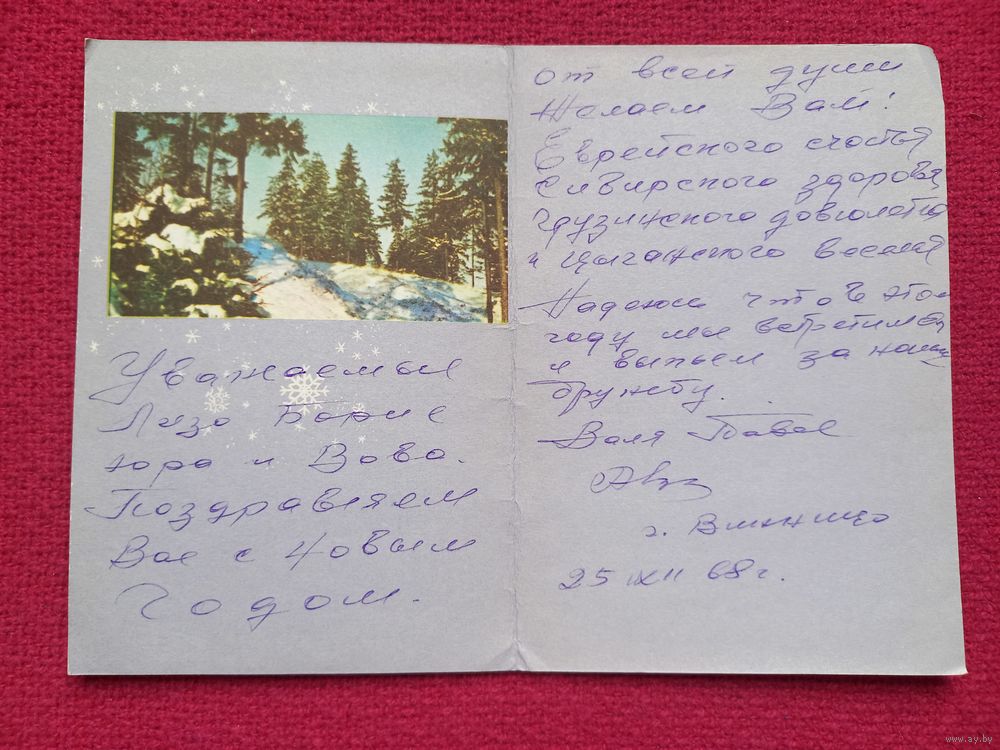 Уважаемые
Лиза Борис
Юра и Вова.
Поздравляем
Вас с Новым
Годом.
от всей души
Желаем Вам!
Еврейского счастья
Сибирского здоровья
Грузинского долголетия
и Цыганского веселья
Надеюсь что в этом
году мы встретимся
и выпьем за нашу
дружбу. . .
Валя Павел
г. Винница
25 XII 68 г.
www.ay.by